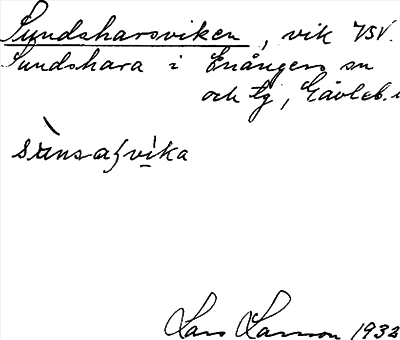 Sundsharsviken, vik VSV.
Sundshara i Enångers sn
och tg, Gävleb.
Lars Larsson 1932